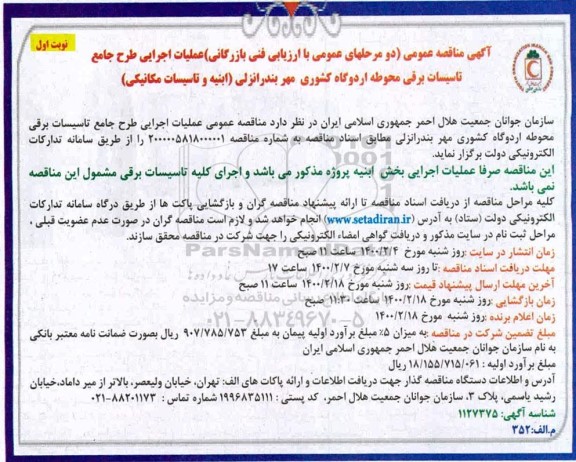 نوبت اول
آگهی مناقصه عمومی (دو مرحلهای عمومی با ارزیابی فنی بازرگانی)عملیات اجرایی طرح جامع
تاسیسات برقی محوطه اردوگاه کشوری مهر بندرانزلی (ابنیه و تاسیسات مکانیکی)
سازمان جوانان جمعیت هلال احمر جمهوری اسلامی ایران در نظر دارد مناقصه عمومی عملیات اجرایی طرح جامع تاسیسات برقی
محوطه اردوگاه کشوری مهر بندرانزلی مطابق اسناد مناقصه به شماره مناقصه ۲۰۰۰۰۰۵۸۱۸۰۰۰۰۰۱ را از طریق سامانه تدارکات
الکترونیکی دولت برگزار نماید.
این مناقصه صرفا عملیات اجرایی بخش ابنیه پروژه مذکور می باشد و اجرای کلیه تاسیسات برقی مشمول این مناقصه
نمی باشد.
کلیه مراحل مناقصه از دریافت اسناد مناقصه تا ارائه پیشنهاد مناقصه گران و بازگشایی پاکت ها از طریق درگاه سامانه تدارکات
الکترونیکی دولت (ستاد) به آدرس (www.setadiran.ir) انجام خواهد شد و لازم است مناقصه گران در صورت عدم عضویت قبلی ،
مراحل ثبت نام در سایت مذکور و دریافت گواهی امضاء الکترونیکی را جهت شرکت در مناقصه محقق سازند.
زمان انتشار در سایت :روز شنبه مورخ ۱۴۰۰/۲/۴ ساعت ۱۱ صبح
مهلت دریافت اسناد مناقصه :تا روز سه شنبه مورخ ۱۴۰۰/۲/۷ ساعت ۱۷
آخرین مهلت ارسال پیشنهاد قیمت :روز شنبه مورخ ۱۴۰۰/۲/۱۸ ساعت ۱۱ صبح
زمان بازگشایی :روز شنبه مورخ ۱۴۰۰/۲/۱۸ ساعت ۱۱:۳۰ صبح
زمان اعلام برنده :روز شنبه مورخ ۱۴۰۰/۲/۱۸
مبلغ تضمین شرکت در مناقصه :به میزان ۵٪ مبلغ برآورد اولیه پیمان به مبلغ ۹۰۷/۷۸۵/۷۵۳ ریال بصورت ضمانت نامه معتبر بانکی
به نام سازمان جوانان جمعیت هلال احمر جمهوری اسلامی ایران
مبلغ برآورد اولیه : ۱۸/۱۵۵/۷۱۵/۰۶۱ ریال
آدرس و اطلاعات دستگاه مناقصه گذار جهت دریافت اطلاعات و ارائه پاکات های الف: تهران، خیابان ولیعصر، بالاتر از میر داماد،خیابان
رشید یاسمی، پلاک ۳، سازمان جوانان جمعیت هلال احمر، کد پستی : ۱۹۹۶۸۳۵۱۱۱ شماره تماس : ۰۲۱-۸۸۲۰۱۱۷۳
شناسه آگهی: ۱۱۲۷۳۷۵
م.الف:۳۵۲